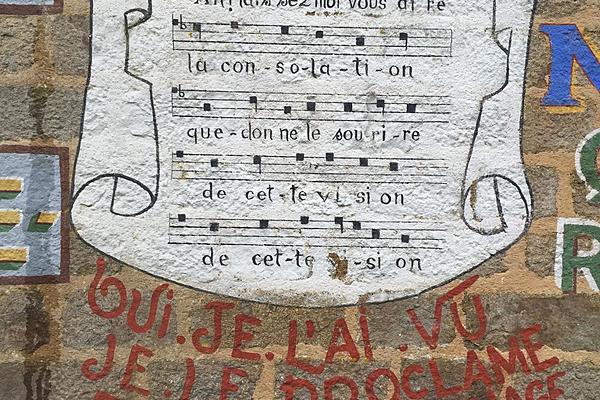 vous di re
la con-so-la-ti-on
que-don ne le sou-ri-re
de cet-te vi si on
de cet-te -si on
OUI.JE.L'AI.VU
JE.LE PROCLAME